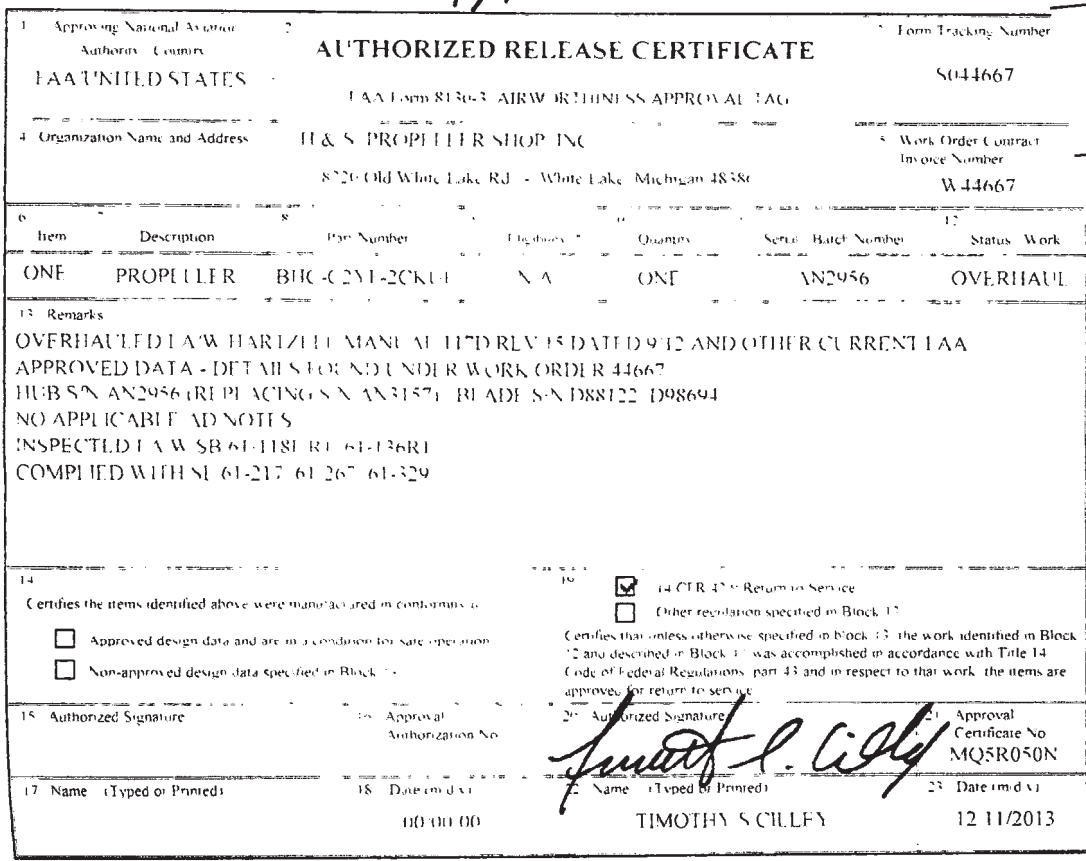 1 Approving National Aviation Authority Country
FAA/UNITED STATES
2
AUTHORIZED RELEASE CERTIFICATE
FAA Form 8130-3 AIRWORTHINESS APPROVAL TAG
3 Form Tracking Number
S044667
4 Organization Name and Address
H & S PROPELLER SHOP INC
8720 Old White Lake Rd. - White Lake Michigan 48386
5 Work Order Contract Invoice Number
W44667
6 Item
7 Description
8 Part Number
9 Eligibility *
10 Quantity
11 Serial Batch Number
12 Status Work
ONE PROPELLER N/A ONE AN2956 OVERHAUL
13 Remarks
OVERHAULED I A W HARTZELL MANUAL 117D REV 15 DATED 9/12 AND OTHER CURRENT FAA
APPROVED DATA - DETAILS FOUND UNDER WORK ORDER 44667
HUB S/N AN2956 (REPLACING S/N AN3157) BLADE S/N D88122 D98694
NO APPLICABLE AD NOTES
INSPECTED I A W SB 61-136R1
COMPLIED WITH SL 61-217 61-267 61-329
14
Certifies the items identified above were manufactured in conformity to
Approved design data and are in a condition for safe operation
Non-approved design data specified in Block 13
19
14 CFR 43.9 Return to Service
Other regulation specified in Block 13
Certifies that unless otherwise specified in block 13, the work identified in Block
12 and described in Block 13 was accomplished in accordance with Title 14
Code of Federal Regulations, part 43 and in respect to that work, the items are
approved for return to service
15 Authorized Signature
16 Approval Authorization No
20 Authorized Signature
21 Approval Certificate No
MQ5R050N
17 Name (Typed or Printed)
18 Date (m d y)
00 00 00
22 Name (Typed or Printed)
TIMOTHY S CILLEY
23 Date (m d y)
12 11/2013